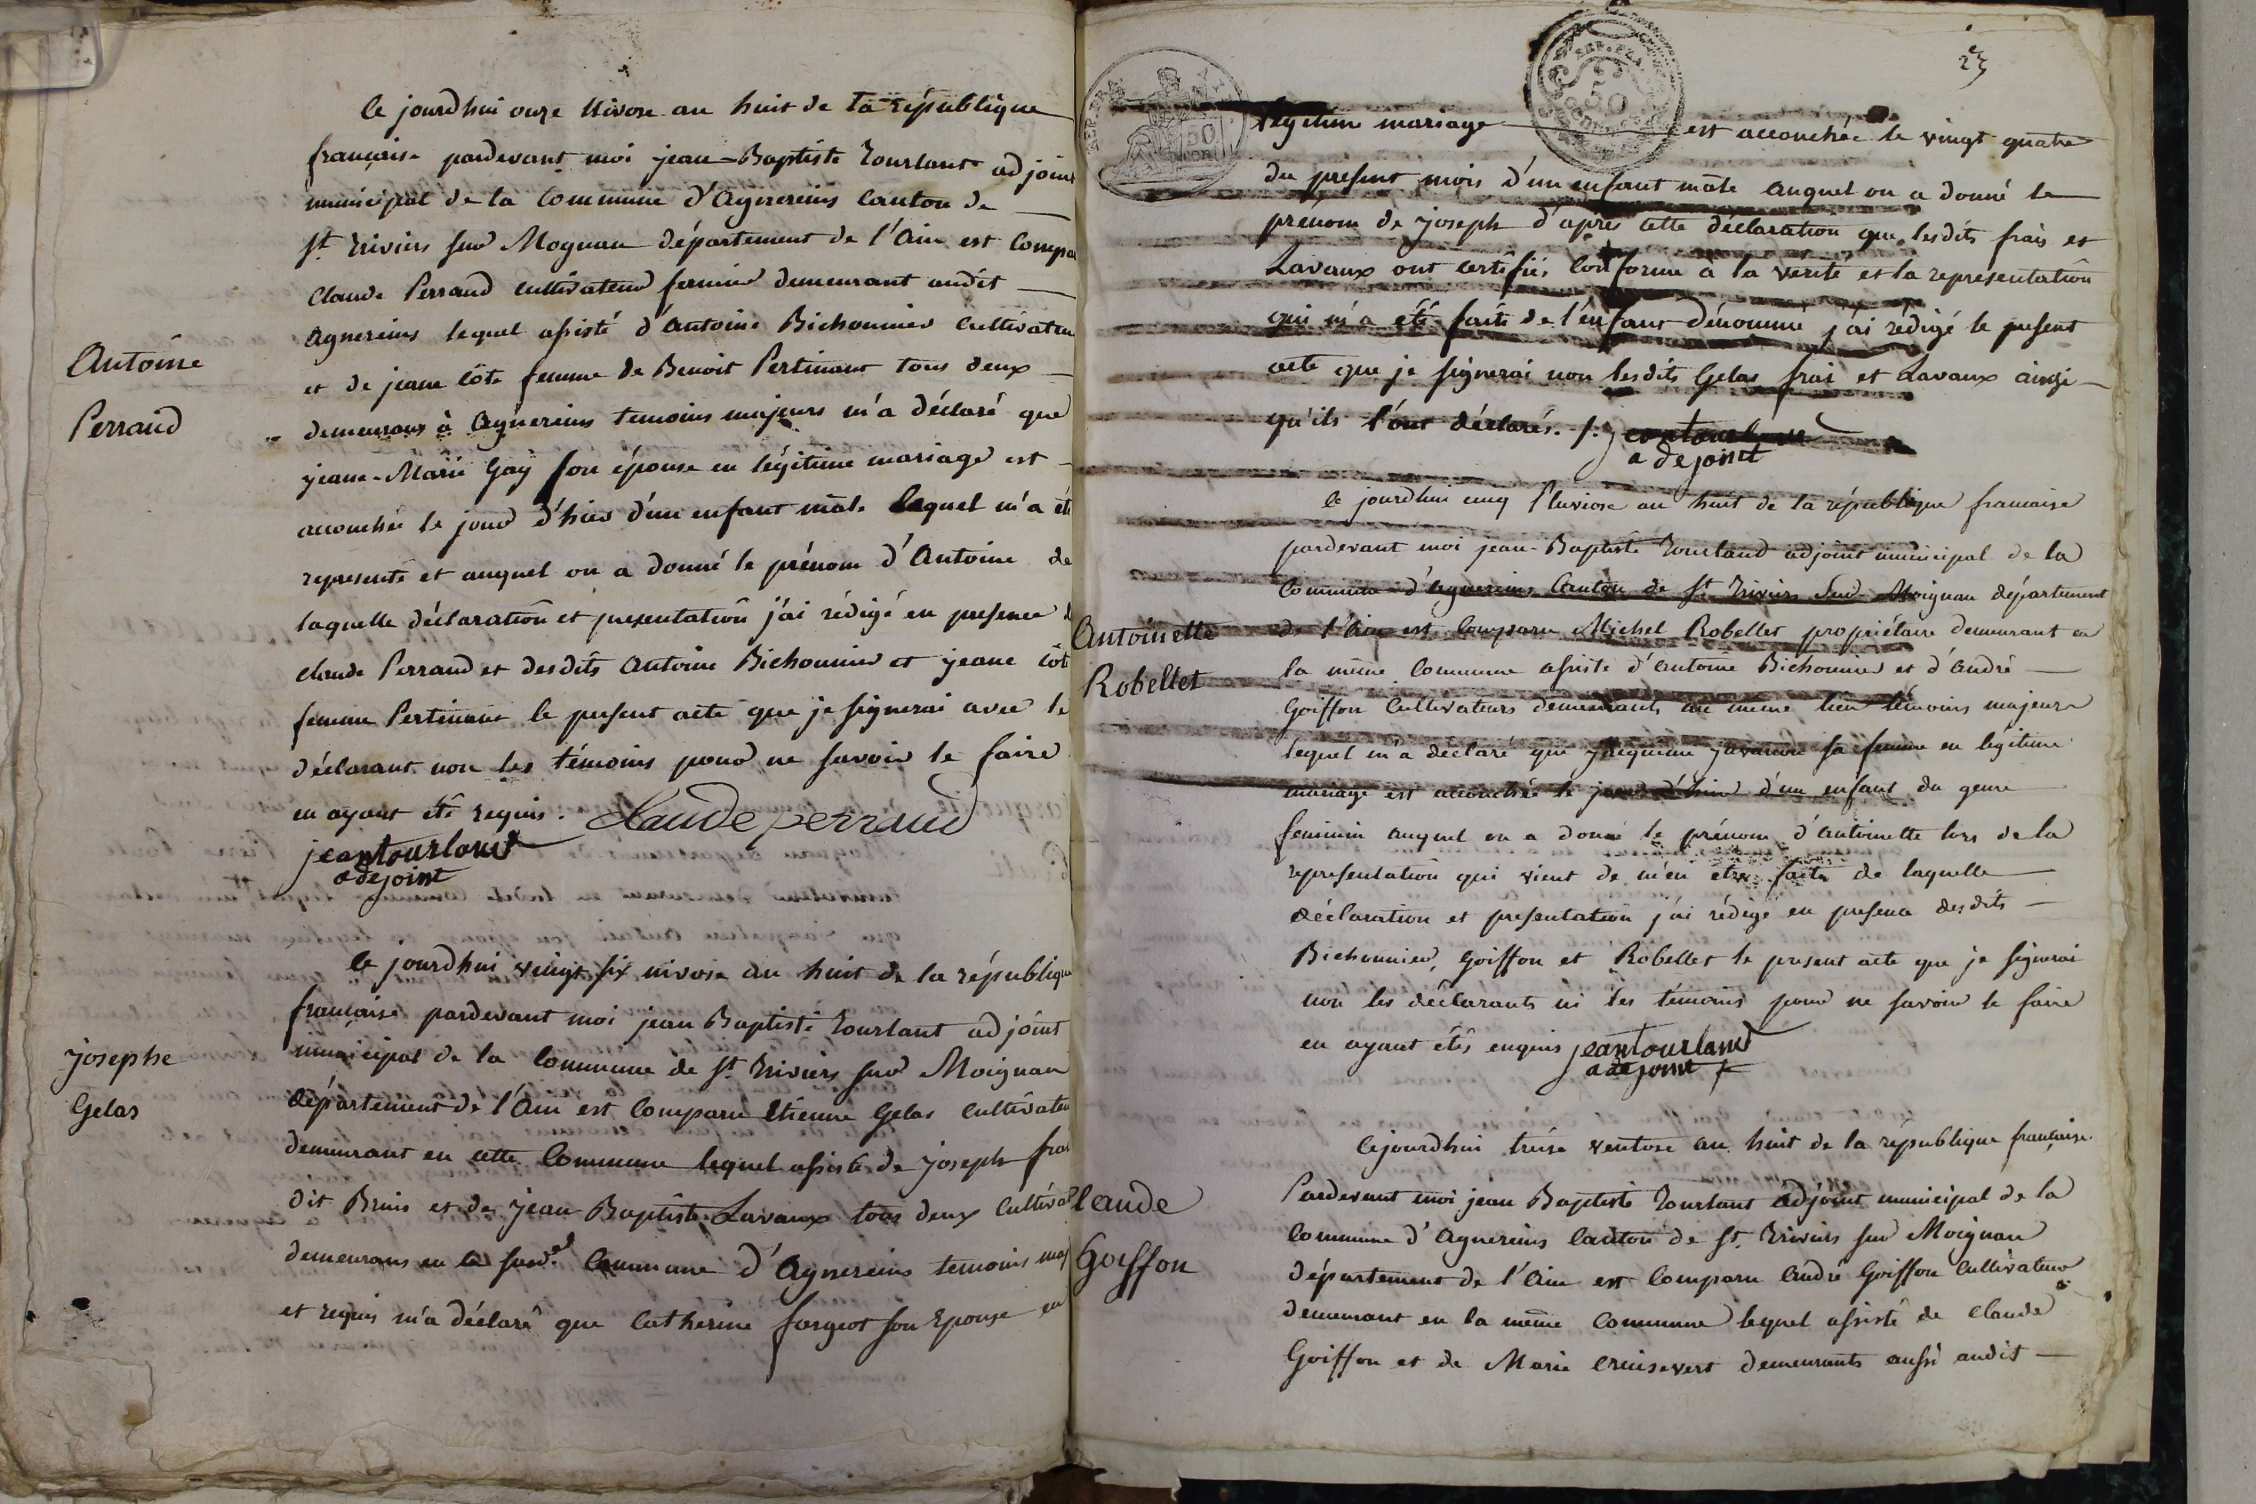 le jourdhui onze Nivose an huit de la république
française pardevant moi jean-Baptiste Tourlant adjoint
municipal de la Commune d'Agnereins Canton de
St Triviers sur Mognan département de l'Ain est Compa
Claude Perraud cultivateur fermier demeurant audit
Agnereins lequel assisté d'Antoine Bichonnier Cultivateu
et de jeane Côte femme de Benoit Pertinant tous deux
demeurans à Agnereins temoins majeurs m'a déclaré que
jeane-Marie Gay son épouse en légitime mariage est
accouchée le jour d'hier d'un enfant mâle lequel m'a été
representé et auquel on a donné le prénom d'Antoine de
laquelle déclaration et presentation j'ai rédigé en presence d
Claude Perraud et desdits Antoine Bichonnier et jeane Côt
femme Pertinant le present acte que je signerai avec le
déclarant non les témoins pour ne savoir le faire
en ayant été requis. Claude perraud
jeantourlant
adejoint
Antoine
Perraud
le jourdhui vingt six nivose an huit de la république
française pardevant moi jean Baptiste Tourlant adjoint
municipal de la Commune de St Triviers sur Moignan
département de l'Ain est Comparu Etienne Gelas Cultivateu
demeurant en cette Commune lequel assisté de joseph frai
dit Bruis et de jean Baptiste Lavaux tous deux Cultivat
demeurans en la susd. Commune d'Agnereins temoins maj
et requis m'a déclaré que Catherine forgeot son Epouse en
josephe
Gelas
23
légitime mariage est accouchée le vingt quatre
du present mois d'un enfant mâle auquel on a donné le
prénom de joseph d'après cette déclaration que lesdits frais et
Lavaux ont certifiés conforme à la verité et la representation
qui m'a été faite de l'enfant dénommé j'ai rédigé le present
acte que je signerai non lesdits Gelas frai et Lavaux ainsi
qu'ils l'ont déclarés. /. jeantourlant
adejoint
le jourdhui cinq Pluviose an huit de la république francaise
pardevant moi jean-Baptiste Tourland adjoint municipal de la
Commune d'Agnereins Canton de St Triviers Sur Moignan département
de l'Ain est Comparu Michel Robellet propriétaire demeurant en
la même Commune assisté d'Antoine Bichonnier et d'André
Goiffon Cultivateurs demeurants au même lieu témoins majeurs
lequel m'a déclaré que sa femme en légitime
mariage est accouchée le jour d'hier d'un enfant du genre
feminin auquel on a donné le prénom d'Antoinette lors de la
representation qui vient de m'en être faite de laquelle
déclaration et presentation j'ai rédigé en presence desdits
Bichonnier, Goiffon et Robellet le present acte que je signerai
non les déclarants ni les témoins pour ne savoir le faire
en ayant étés enquis jeantourland
adejoint
Antoinette
Robellet
Cejourdhui treise ventose an huit de la république française
Pardevant moi jean Baptiste Tourlant adjoint municipal de la
Commune d'Agnereins Canton de St. Triviers sur Moignan
département de l'Ain est Comparu André Goiffon Cultivateur
demeurant en la même Commune lequel assisté de Claude
Goiffon et de Marie Cruisevert demeurants aussi audit
Claude
Goiffon